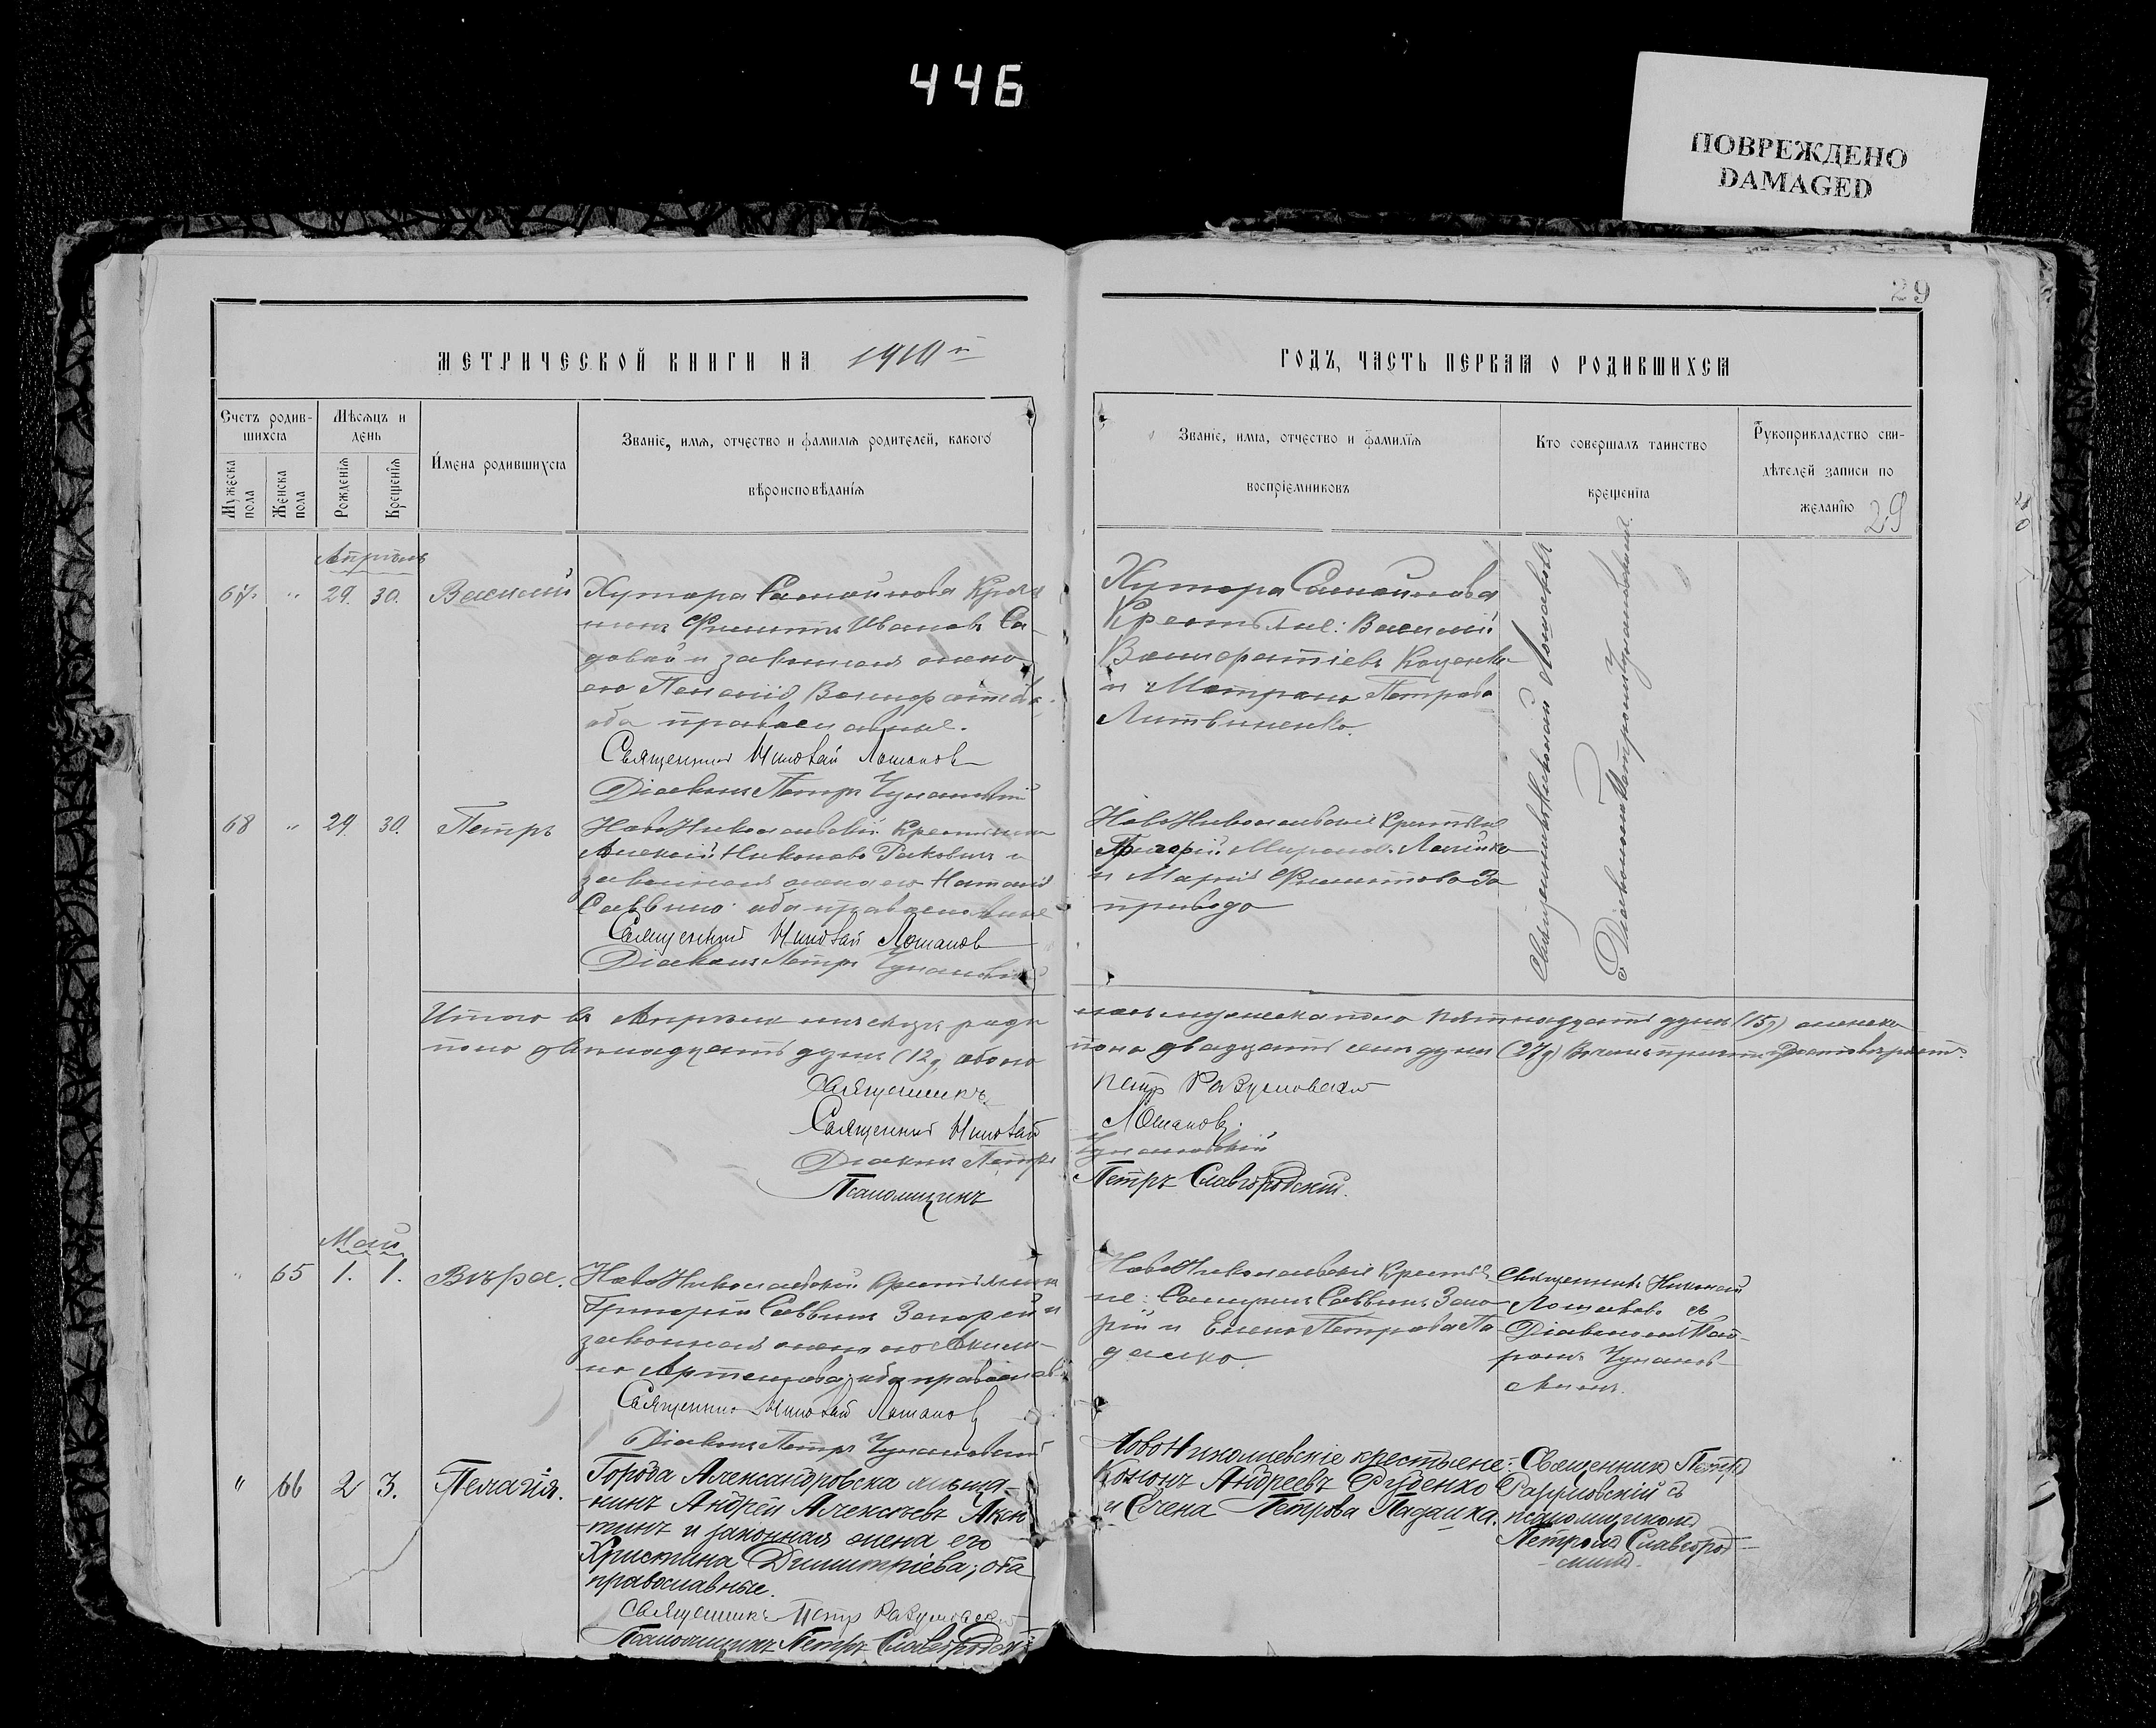 446
ПОВРЕЖДЕНО
DAMAGED
29
МЕТРИЧЕСКОЙ КНИГИ НА 1910й
ГОДЪ, ЧАСТЬ ПЕРВАЯ О РОДИВШИХСЯ
Счетъ родив-
шихся
Мужеска пола
Женска пола
Мѣсяцъ и
день
Рожденія
Крещенія
Имена родившихся
Званіе, имя, отчество и фамилія родителей, какого
вѣроисповѣданія
Званіе, имя, отчество и фамилія
воспріемниковъ
Кто совершалъ таинство
крещенія
Рукоприкладство сви-
дѣтелей записи по
желанію
29
Апрѣль
67. " 29. 30. Василій
Хутора Самойлова Крест
Филиппъ Ивановъ Са-
довой и законная жена
его Пелагія
оба православные.
Священникъ Николай Лошаковъ
Діаконъ Петръ
Хутора Самойлова
Крестьяне: Василій
Коценко
и Матрона Петрова
Литвиненко.
Священникъ Николай Лошаковъ
съ Діакономъ Петромъ
68 " 29. 30. Петръ
НовоНиколаевскій Крестьянинъ
Алексій и
законная жена его Наталія
Саввина оба православные
Священникъ Николай Лошаковъ
Діаконъ Петръ
НовоНиколаевскіе Крестьяне
Григорій Мироновъ
и Марія Филиппова За
привода
Итого въ Апрѣлѣ мѣсяцѣ роди
лось мужеска пола пятнадцать душъ (15) женска
пола двѣнадцать душъ (12), обоего
пола двадцать семь душъ (27)
Священникъ Петръ Разумовскій
Священникъ Николай Лошаковъ.
Діаконъ Петръ
Псаломщикъ Петръ Славгородскій.
Май
" 65 1. 1. Вѣра.
НовоНиколаевскій Крестьянинъ
Григорій Саввинъ Запорой и
законная жена его Акили-
на Артемова, оба православ
Священникъ Николай Лошаковъ
Діаконъ Петръ
НовоНиколаевскіе Крестья
не: Саввинъ Запо
рій и Елена Петрова Па
далка.
Священникъ Николай
Лошаковъ съ
Діакономъ Пет-
ромъ
" 66 2 3. Пелагія.
Города Александровска мѣща-
нинъ Андрей Алексѣевъ Акси
тинъ и законная жена его
Христина Димитріева; оба
православные.
Священникъ Петръ Разумовскій
Псаломщикъ Петръ Славгородскій
НовоНиколаевскіе крестьяне:
Кононъ Андреевъ Руденко
и Елена Петрова Падалка.
Священникъ Петръ
Разумовскій съ
псаломщикомъ
Петромъ Славгород-
скимъ.